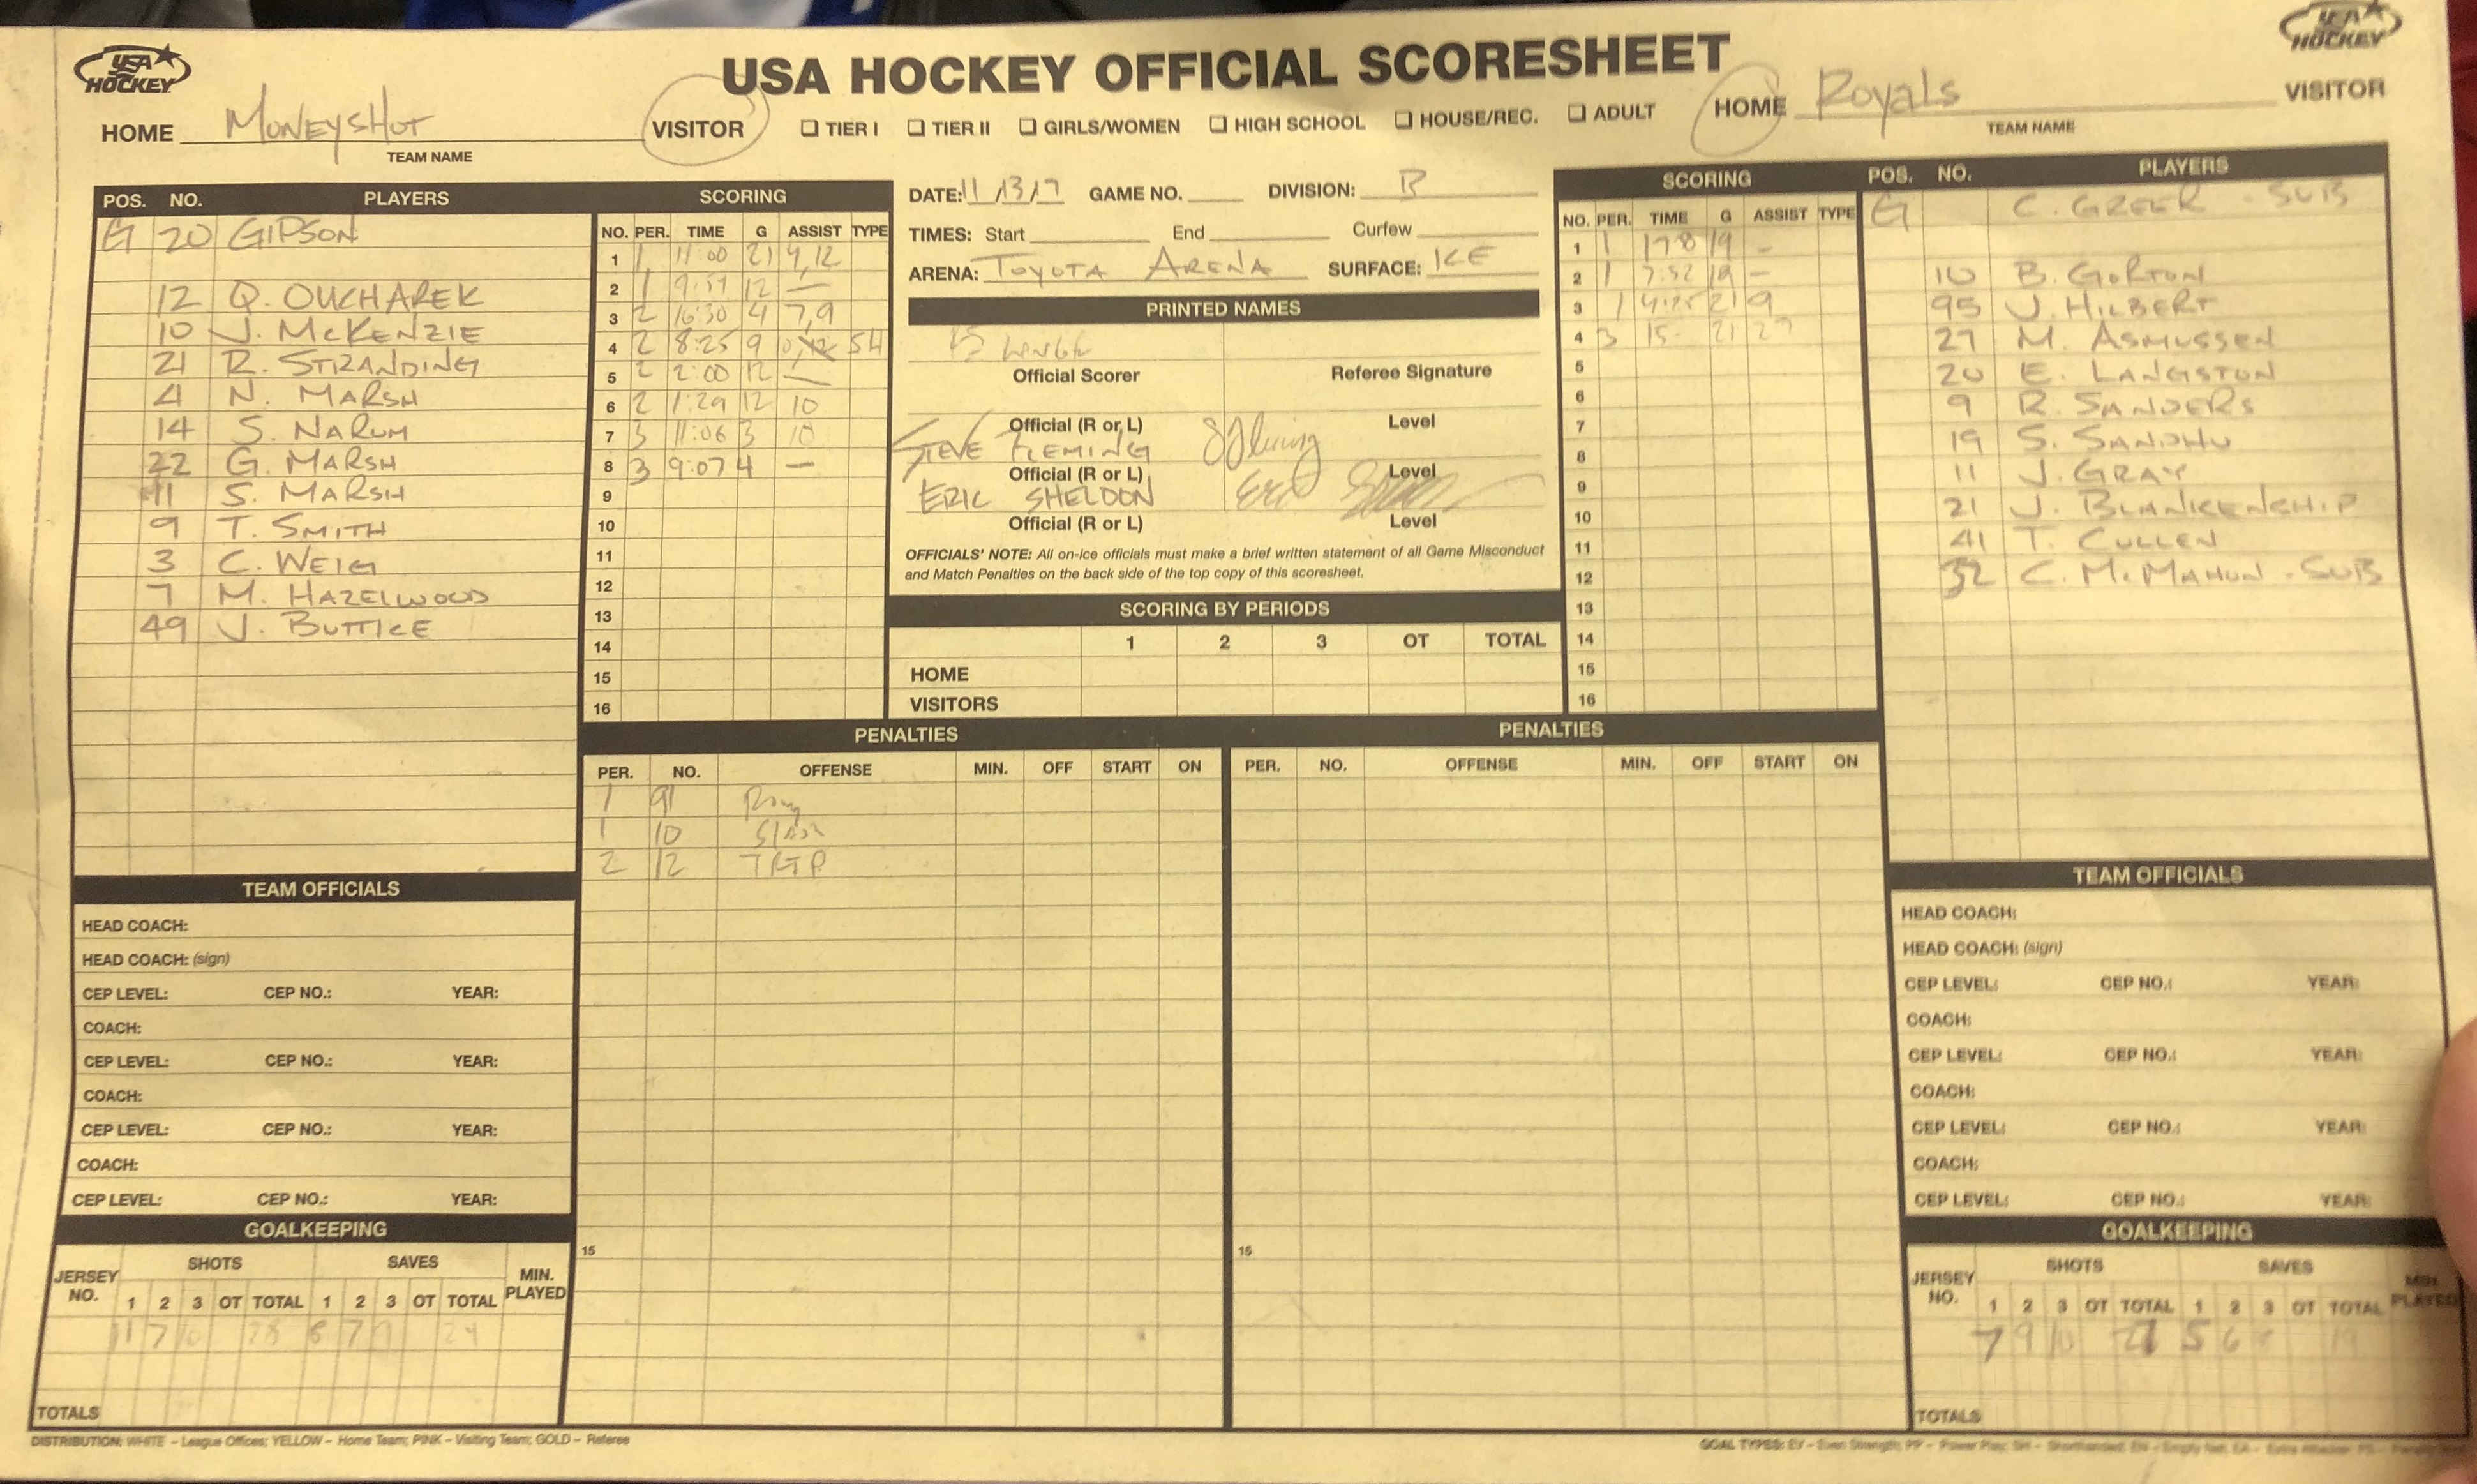 USA HOCKEY
USA HOCKEY OFFICIAL SCORESHEET
USA HOCKEY
HOME MONEYSHOT VISITOR
TEAM NAME
☐ TIER I ☐ TIER II ☐ GIRLS/WOMEN ☐ HIGH SCHOOL ☐ HOUSE/REC. ☐ ADULT
HOME Royals VISITOR
TEAM NAME
POS. NO. PLAYERS
G 20 GIPSON
12 Q. OUCHAREK
10 J. MCKENZIE
21 R. STRANDING
4 N. MARSH
14 S. NARUM
22 G. MARSH
11 S. MARSH
9 T. SMITH
3 C. WEIG
7 M. HAZELWOOD
49 J. BUTTICE
SCORING
NO. PER. TIME G ASSIST TYPE
1 1 11:00 21 4,12
2 1 9:59 12 —
3 2 16:30 4 7,9
4 2 8:25 9 SH
5 2 2:00 12 —
6 2 1:29 12 10
7 3 11:06 3 10
8 3 9:07 4 —
9
10
11
12
13
14
15
16
DATE: 11/13/17 GAME NO. DIVISION: B
TIMES: Start End Curfew
ARENA: TOYOTA ARENA SURFACE: ICE
PRINTED NAMES
Official Scorer Referee Signature
Official (R or L) Level
STEVE FLEMING
Official (R or L) Level
ERIC SHELDON
Official (R or L) Level
OFFICIALS' NOTE: All on-ice officials must make a brief written statement of all Game Misconduct
and Match Penalties on the back side of the top copy of this scoresheet.
SCORING BY PERIODS
1 2 3 OT TOTAL
HOME
VISITORS
SCORING
NO. PER. TIME G ASSIST TYPE
1 1 19 —
2 1 7:52 19 —
3 1 4:25 21 9
4 3 15- 21 27
5
6
7
8
9
10
11
12
13
14
15
16
POS. NO. PLAYERS
G C. GREER - SUB
10 B. GORTON
95 J. HILBERT
27 M. ASMUSSEN
20 E. LANGSTON
9 R. SANDERS
19 S. SANDHU
11 J. GRAY
21 J. BLANKENSHIP
41 T. CULLEN
32 C. MCMAHON - SUB
PENALTIES
PER. NO. OFFENSE MIN. OFF START ON
1 91
1 10 Slash
2 12 TRIP
15
PENALTIES
PER. NO. OFFENSE MIN. OFF START ON
15
TEAM OFFICIALS
HEAD COACH:
HEAD COACH: (sign)
CEP LEVEL: CEP NO.: YEAR:
COACH:
CEP LEVEL: CEP NO.: YEAR:
COACH:
CEP LEVEL: CEP NO.: YEAR:
COACH:
CEP LEVEL: CEP NO.: YEAR:
GOALKEEPING
SHOTS SAVES
JERSEY NO. 1 2 3 OT TOTAL 1 2 3 OT TOTAL MIN. PLAYED
11 7 10 28 8 7 9 24
TOTALS
TEAM OFFICIALS
HEAD COACH:
HEAD COACH: (sign)
CEP LEVEL: CEP NO.: YEAR:
COACH:
CEP LEVEL: CEP NO.: YEAR:
COACH:
CEP LEVEL: CEP NO.: YEAR:
COACH:
CEP LEVEL: CEP NO.: YEAR:
GOALKEEPING
SHOTS SAVES
JERSEY NO. 1 2 3 OT TOTAL 1 2 3 OT TOTAL MIN. PLAYED
7 9 10 5 6 19
TOTALS
DISTRIBUTION: WHITE – League Offices; YELLOW – Home Team; PINK – Visiting Team; GOLD – Referee
GOAL TYPES: EV – Even Strength; PP – Power Play; SH – Shorthanded; EN – Empty Net; EA – Extra Attacker; PS –